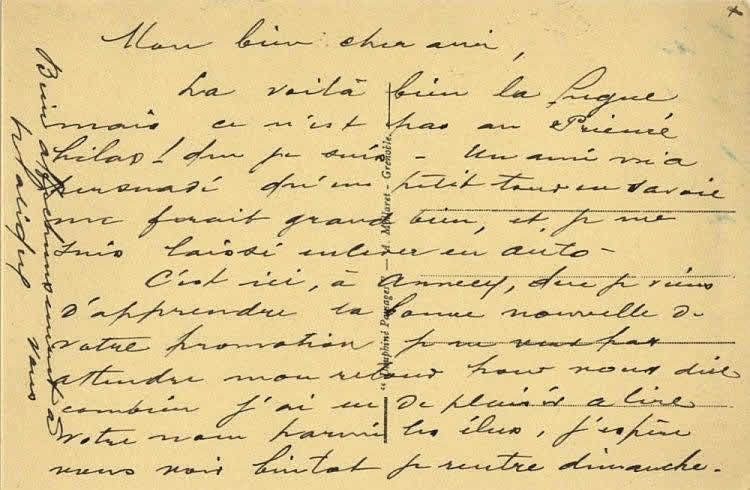 Mon bien cher ami,
La voilà bien la fugue
mais ce n'est pas au Prieuré
hélas! que je suis - Un ami m'a
persuadé qu'un petit tour en Savoie
me ferait grand bien, et je me
suis laissé enlever en auto -
C'est ici, à Annecy, que je viens
d'apprendre la bonne nouvelle de
votre promotion je ne veux pas
attendre mon retour pour vous dire
combien j'ai eu de plaisir a lire
votre nom parmi les élus, j'espère
vous voir bientot je rentre dimanche.
Bien affectueusement à
vous
"Dauphiné Paysages" — A. Mollaret - Grenoble.